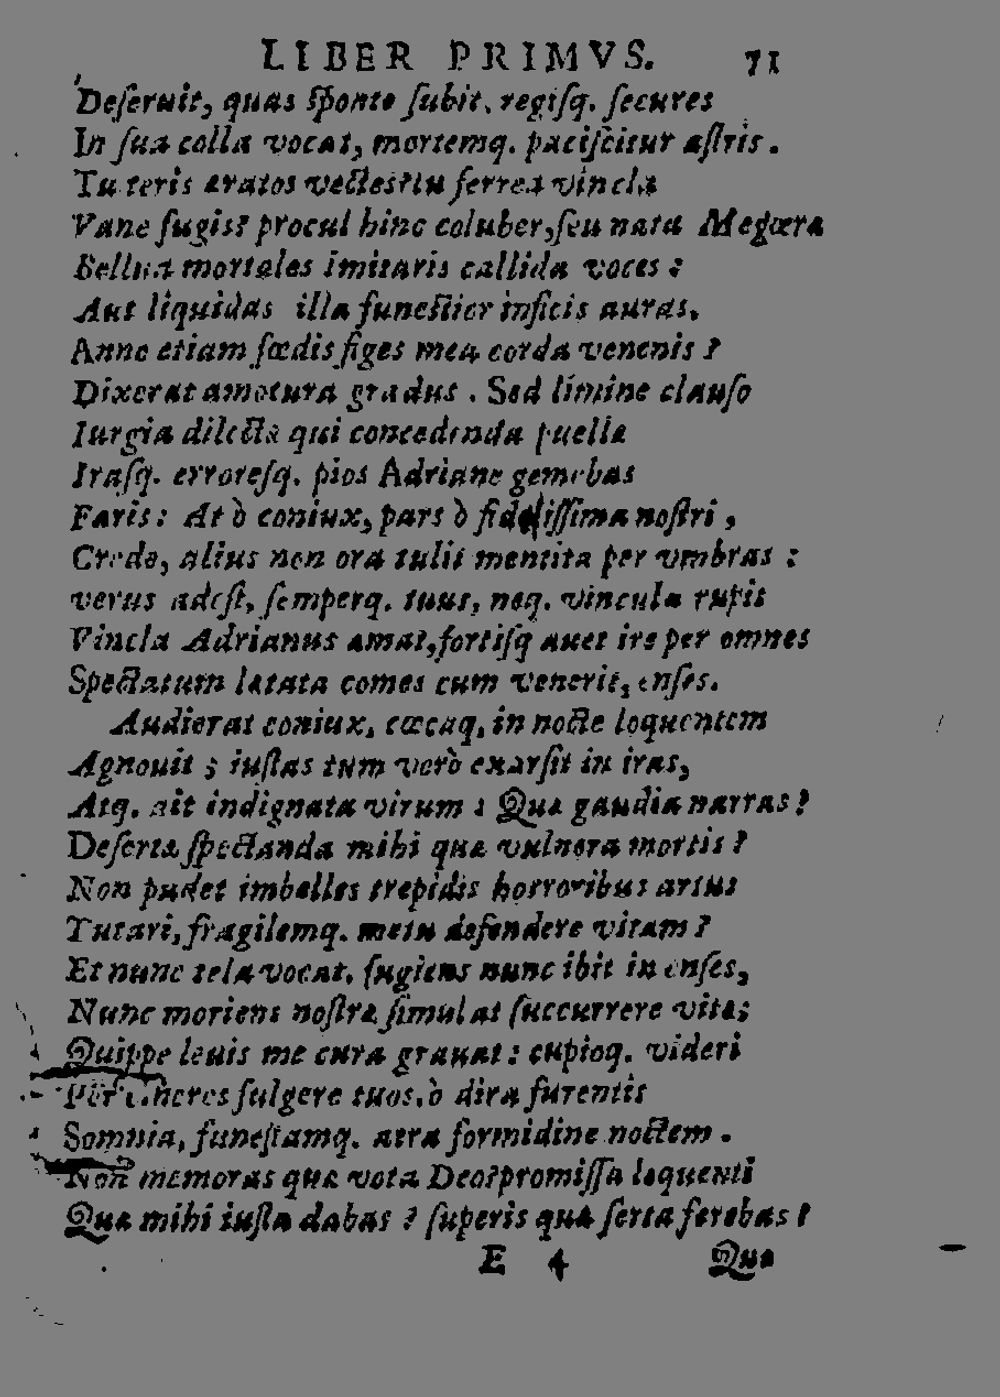 LIBER PRIMVS. 71
Deseruit, quas sponte subit. regisq. secures
In sua colla vocat, mortemq. paciscitur astris.
Tu teris aratos vectes? tu ferrea vincla
Vane fugis? procul hinc coluber, seu nata Megæra
Bellua mortales imitaris callida voces:
Aut liquidas illa funestior inficis auras.
Anne etiam fœdis figes mea corda venenis?
Dixerat amotura gradus. Sed limine clauso
Iurgia dilectæ qui concedenda puellæ
Irasq. erroresq. pios Adriane gemebas
Faris: At ò coniux, pars ò fidelissima nostri,
Crede, alius non ora tulit mentita per vmbras:
verus adest, semperq. tuus, neq. vincula rupit
Vincla Adrianus amat, fortisq auet ire per omnes
Spectatum lætata comes cum venerit, enses.
Audierat coniux, cæcaq. in nocte loquentem
Agnouit; iustas tum verò exarsit in iras,
Atq. ait indignata virum: Quæ gaudia narras?
Desertæ spectanda mihi quæ vulnera mortis?
Non pudet imbelles trepidis horroribus artus
Tutari, fragilemq. metu defendere vitam?
Et nunc tela vocat, fugiens nunc ibit in enses,
Nunc moriens nostræ simulat succurrere vitæ;
Quippe leuis me cura grauat: cupioq. videri
fulgere tuos, ò dira furentis
Somnia, funestamq. atra formidine noctem.
Non memoras quæ vota Deo? promissa loquenti
Quæ mihi iusta dabas? superis quæ serta ferebas?
E 4 Quæ